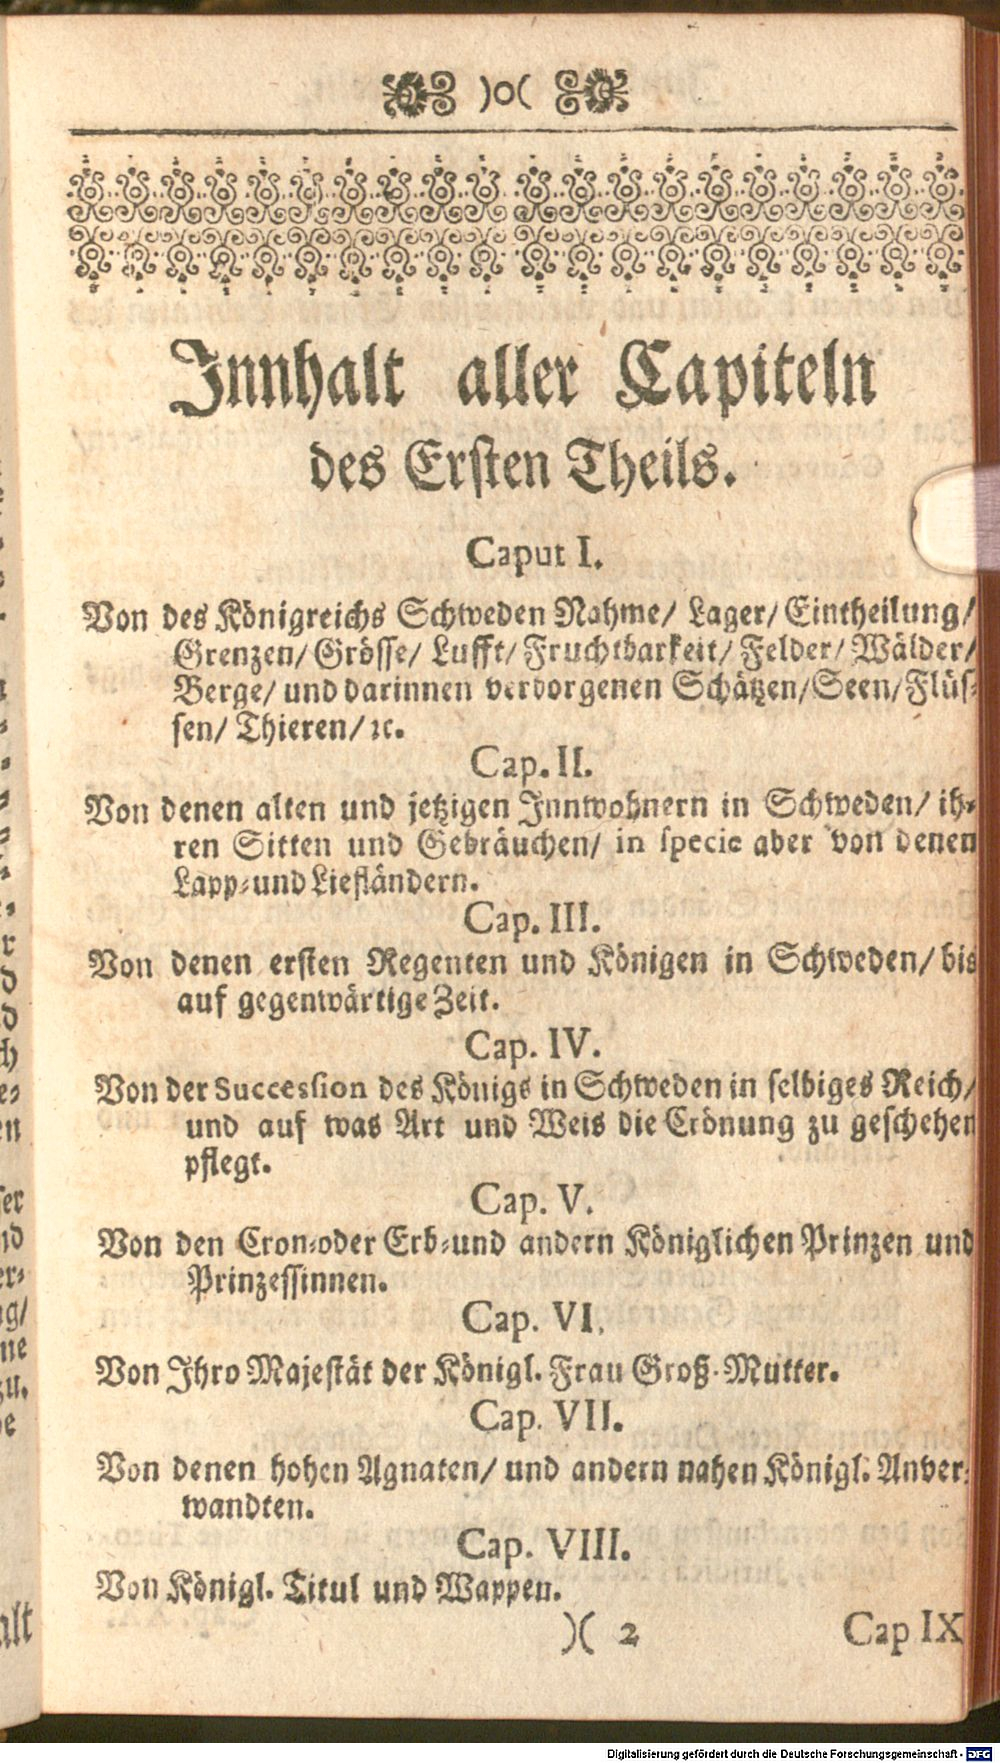 )o(
Innhalt aller Capiteln
des Ersten Theils.
Caput I.
Von des Königreichs Schweden Nahme/ Lager/ Eintheilung/
Grenzen/ Grösse/ Lufft/ Fruchtbarkeit/ Felder/ Wälder/
Berge/ und darinnen verborgenen Schätzen/ Seen/ Flüs-
sen/ Thieren/ ꝛc.
Cap. II.
Von denen alten und jetzigen Innwohnern in Schweden/ ih-
ren Sitten und Gebräuchen/ in specie aber von denen
Lapp-und Liefländern.
Cap. III.
Von denen ersten Regenten und Königen in Schweden/ bis
auf gegenwärtige Zeit.
Cap. IV.
Von der Succession des Königs in Schweden in selbiges Reich/
und auf was Art und Weis die Crönung zu geschehen
pflegt.
Cap. V.
Von den Cron-oder Erb-und andern Königlichen Prinzen und
Prinzessinnen.
Cap. VI.
Von Ihro Majestät der Königl. Frau Groß-Mutter.
Cap. VII.
Von denen hohen Agnaten/ und andern nahen Königl. Anver-
wandten.
Cap. VIII.
Von Königl. Titul und Wappen.
)( 2 Cap IX
Digitalisierung gefördert durch die Deutsche Forschungsgemeinschaft - DFG